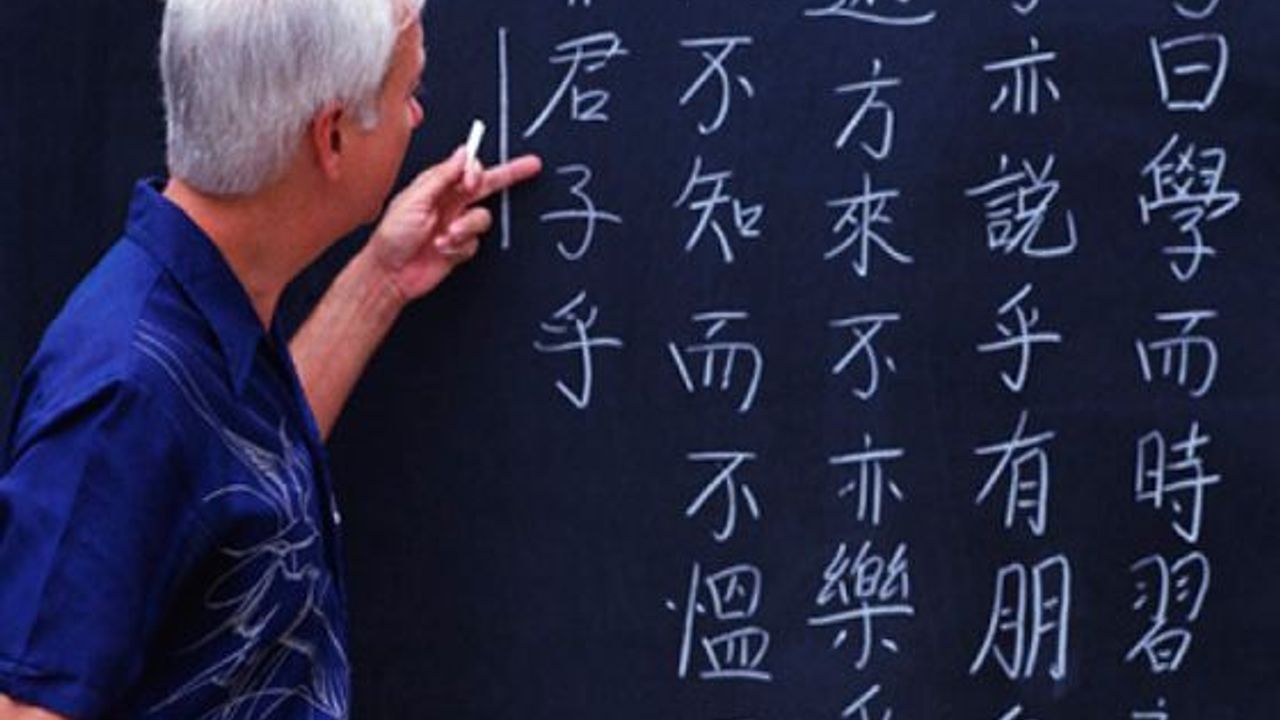 曰學而時習
亦説乎有朋
方來不亦樂乎
不知而不慍
君子乎